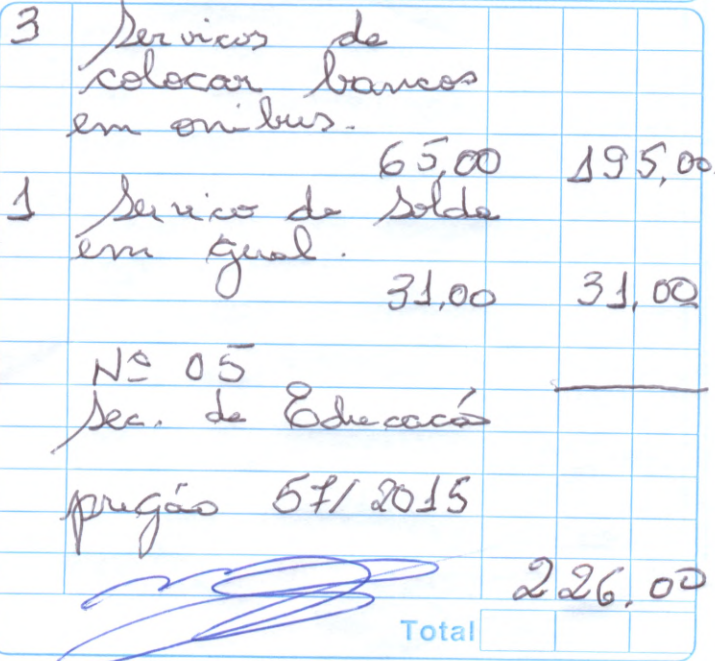 3 Servicos de
colocar bancos
em onibus.
65,00 195,00
1 Servico de Solda
em gual.
31,00 31,00
Nº 05
Sec. de Educacão
pregão 57/2015
226,00
Total